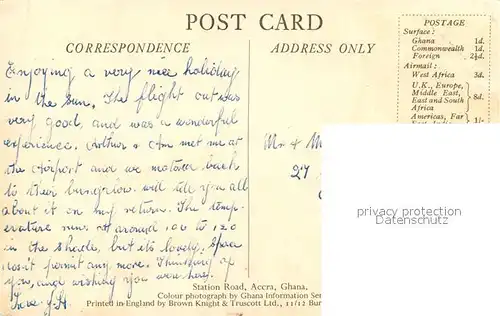 POST CARD
CORRESPONDENCE
ADDRESS ONLY
POSTAGE
Surface:
Ghana 1d.
Commonwealth 1d.
Foreign 2½d.
Airmail:
West Africa 3d.
U.K., Europe,
Middle East,
East and South
Africa 8d.
Americas, Far
East, India 1/-
Enjoying a very nice holiday
in the sun. The flight out was
very good, and was a wonderful
experience. Arthur & met me at
the airport and we motored back
to their bungalow. will tell you all
about it on my return. The temp-
erature runs at around 100 to 120
in the shade, but its lovely. Space
permit any more. Thinking of
you, and wishing you were here.
Love
Mr & M
27
privacy protection
Datenschutz
Station Road, Accra, Ghana.
Colour photograph by Ghana Information Ser
Printed in England by Brown Knight & Truscott Ltd., 11/12 Bur